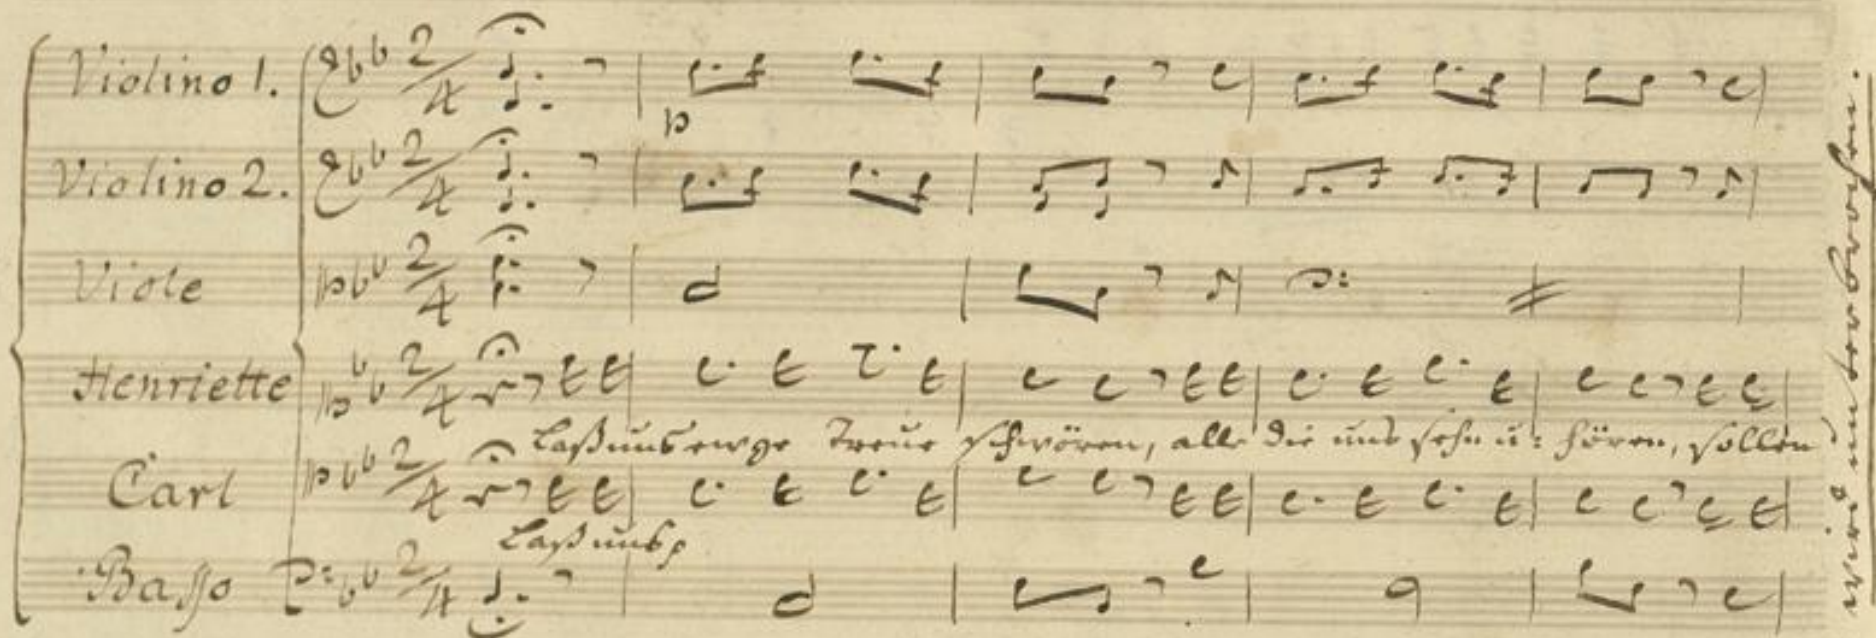 Violino 1.
p
Violino 2.
Viole
Henriette
Laß uns ewge Treue schwören, alle die uns sehn u: hören, sollen
Carl
Laß uns
Basso
wird